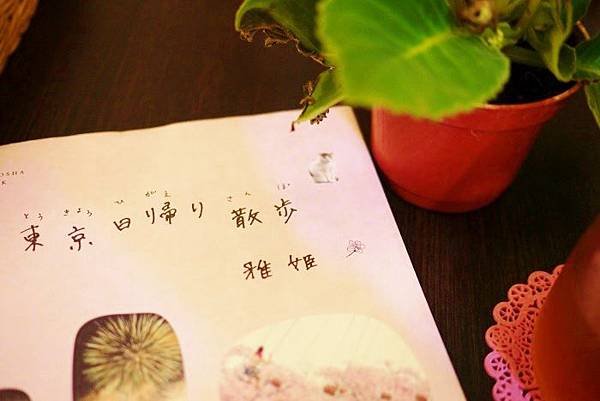 OSHA
K
とうきょう ひがえ さんぽ
東京日帰り散歩
雅姫